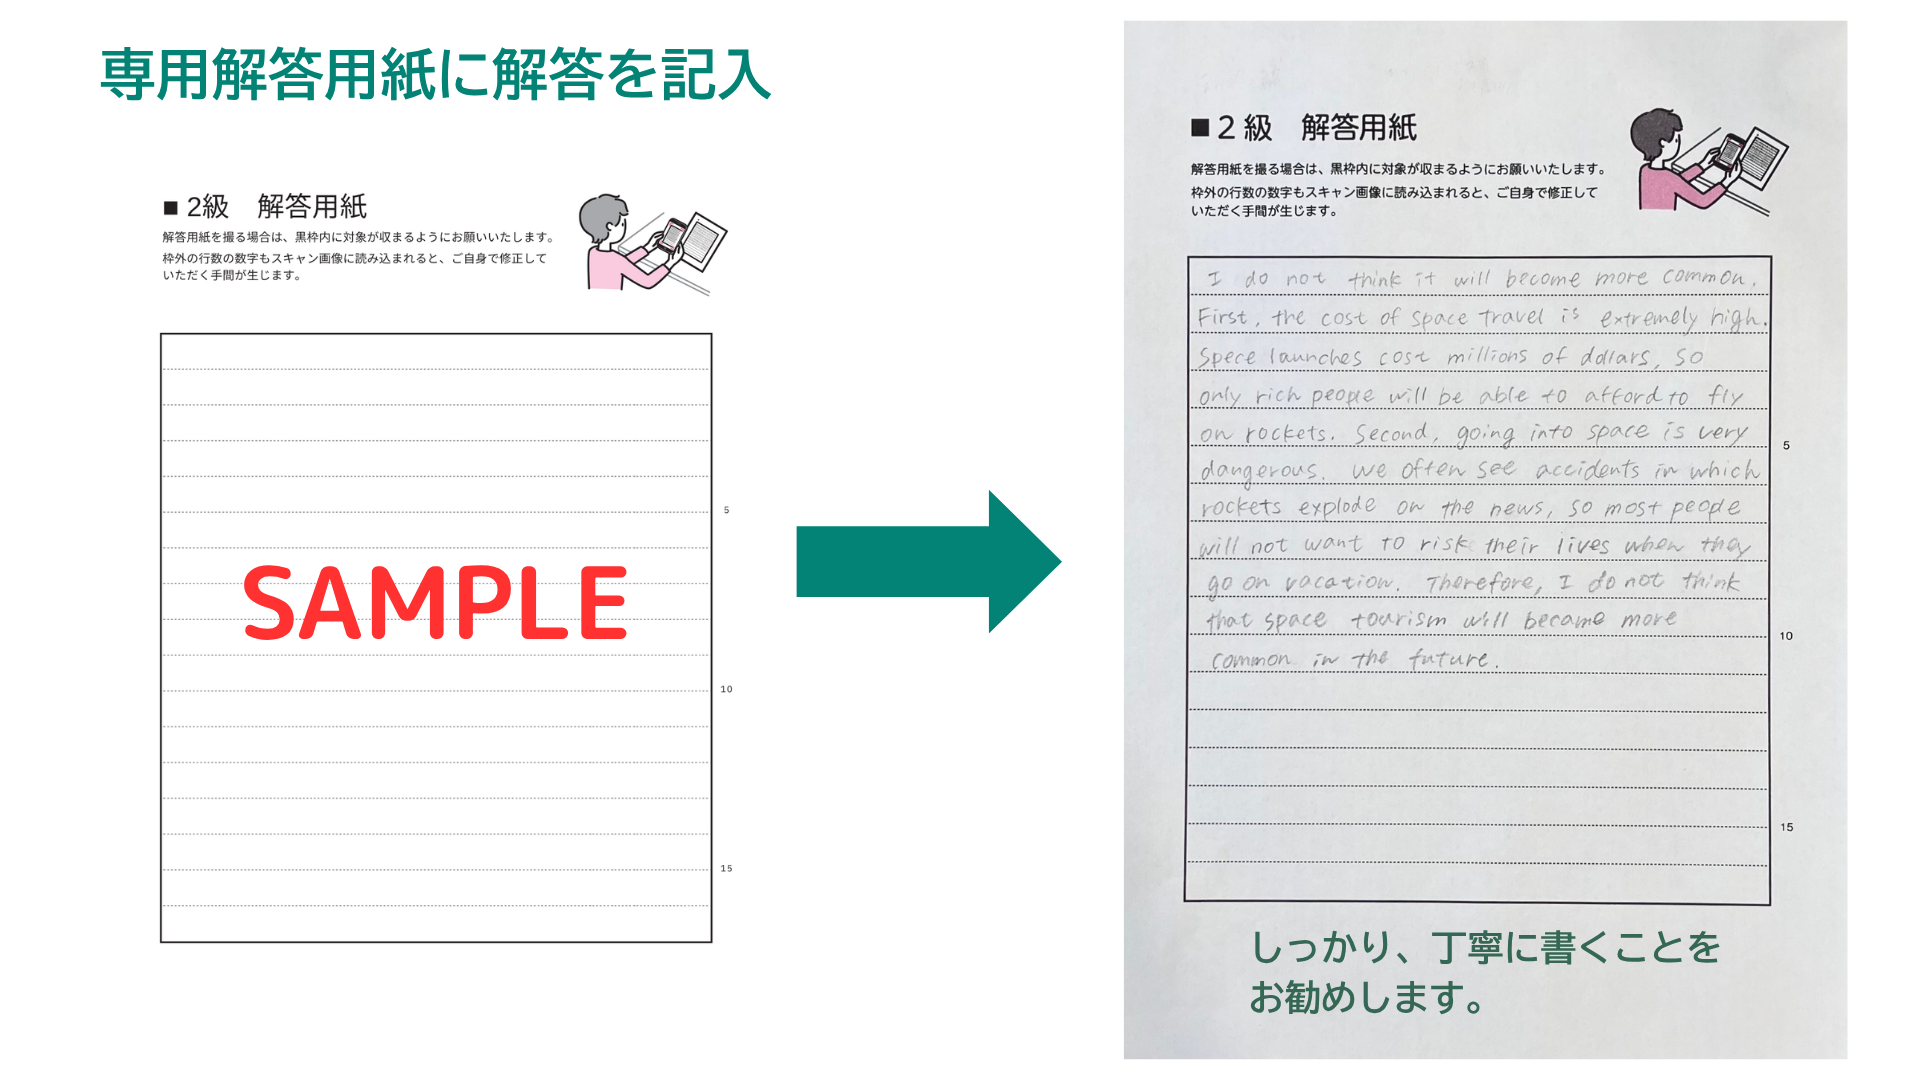 専用解答用紙に解答を記入
■ 2級 解答用紙
解答用紙を撮る場合は、黒枠内に対象が収まるようにお願いいたします。
枠外の行数の数字もスキャン画像に読み込まれると、ご自身で修正して
いただく手間が生じます。
5
SAMPLE
10
15
■ 2級 解答用紙
解答用紙を撮る場合は、黒枠内に対象が収まるようにお願いいたします。
枠外の行数の数字もスキャン画像に読み込まれると、ご自身で修正して
いただく手間が生じます。
I do not think it will become more common.
First, the cost of space travel is extremely high.
Spece launches cost millions of dollars, so
only rich people will be able to afford to fly
on rockets. Second, going into space is very
5
dangerous. We often see accidents in which
rockets explode on the news, so most people
will not want to risk their lives when they
go on vacation. Therefore, I do not think
that space tourism will became more
10
common in the future.
15
しっかり、丁寧に書くことを
お勧めします。